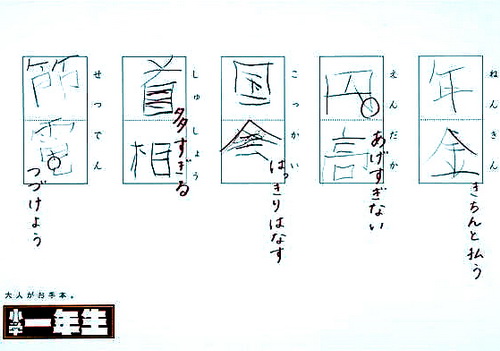 ねんきん
年金
きちんと払う
えんだか
円高
あげすぎない
こっかい
国会
はっきりはなす
しゅしょう
首相
多すぎる
せつでん
節電
つづけよう
大人がお手本。
小学一年生